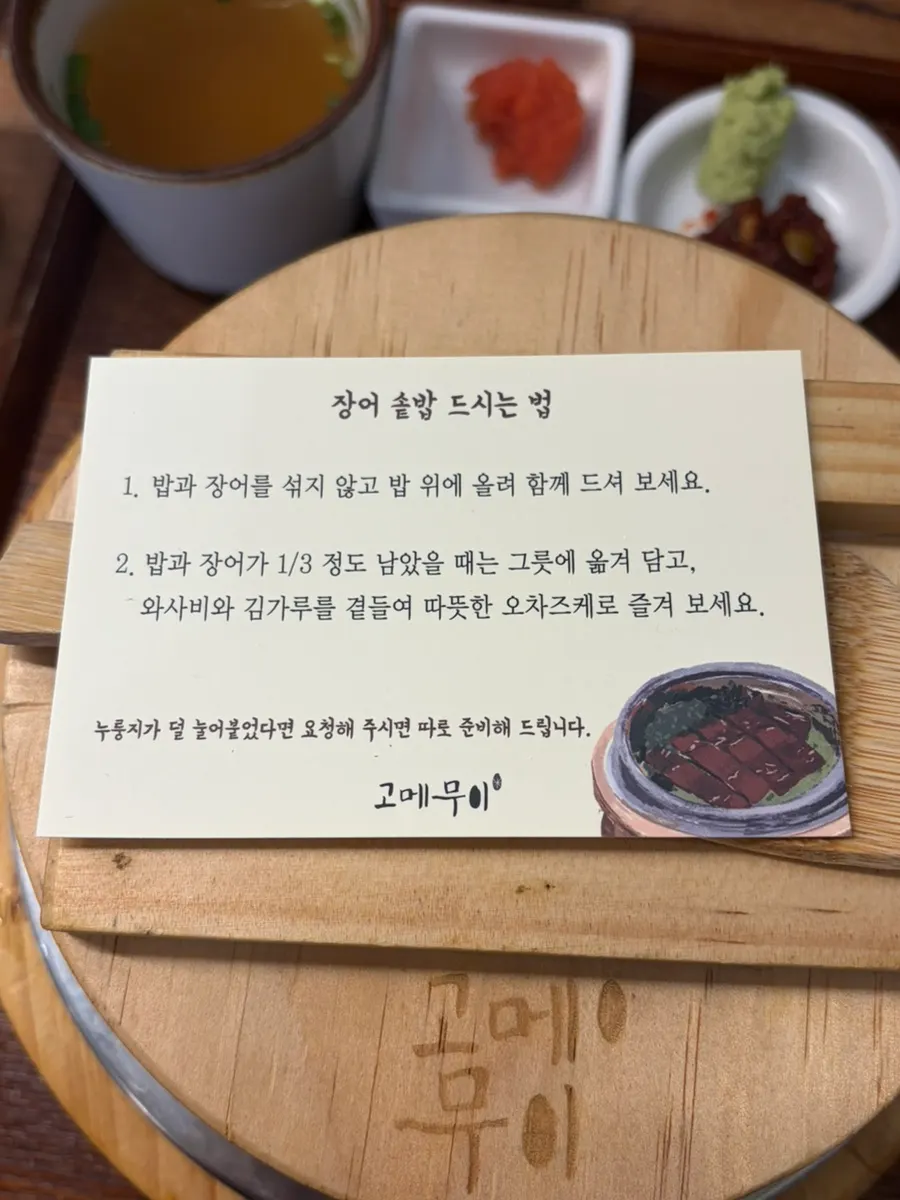 장어 솥밥 드시는 법
1. 밥과 장어를 섞지 않고 밥 위에 올려 함께 드셔 보세요.
2. 밥과 장어가 1/3 정도 남았을 때는 그릇에 옮겨 담고,
와사비와 김가루를 곁들여 따뜻한 오차즈케로 즐겨 보세요.
누룽지가 덜 눌어붙었다면 요청해 주시면 따로 준비해 드립니다.
고메무이
고메이
무이